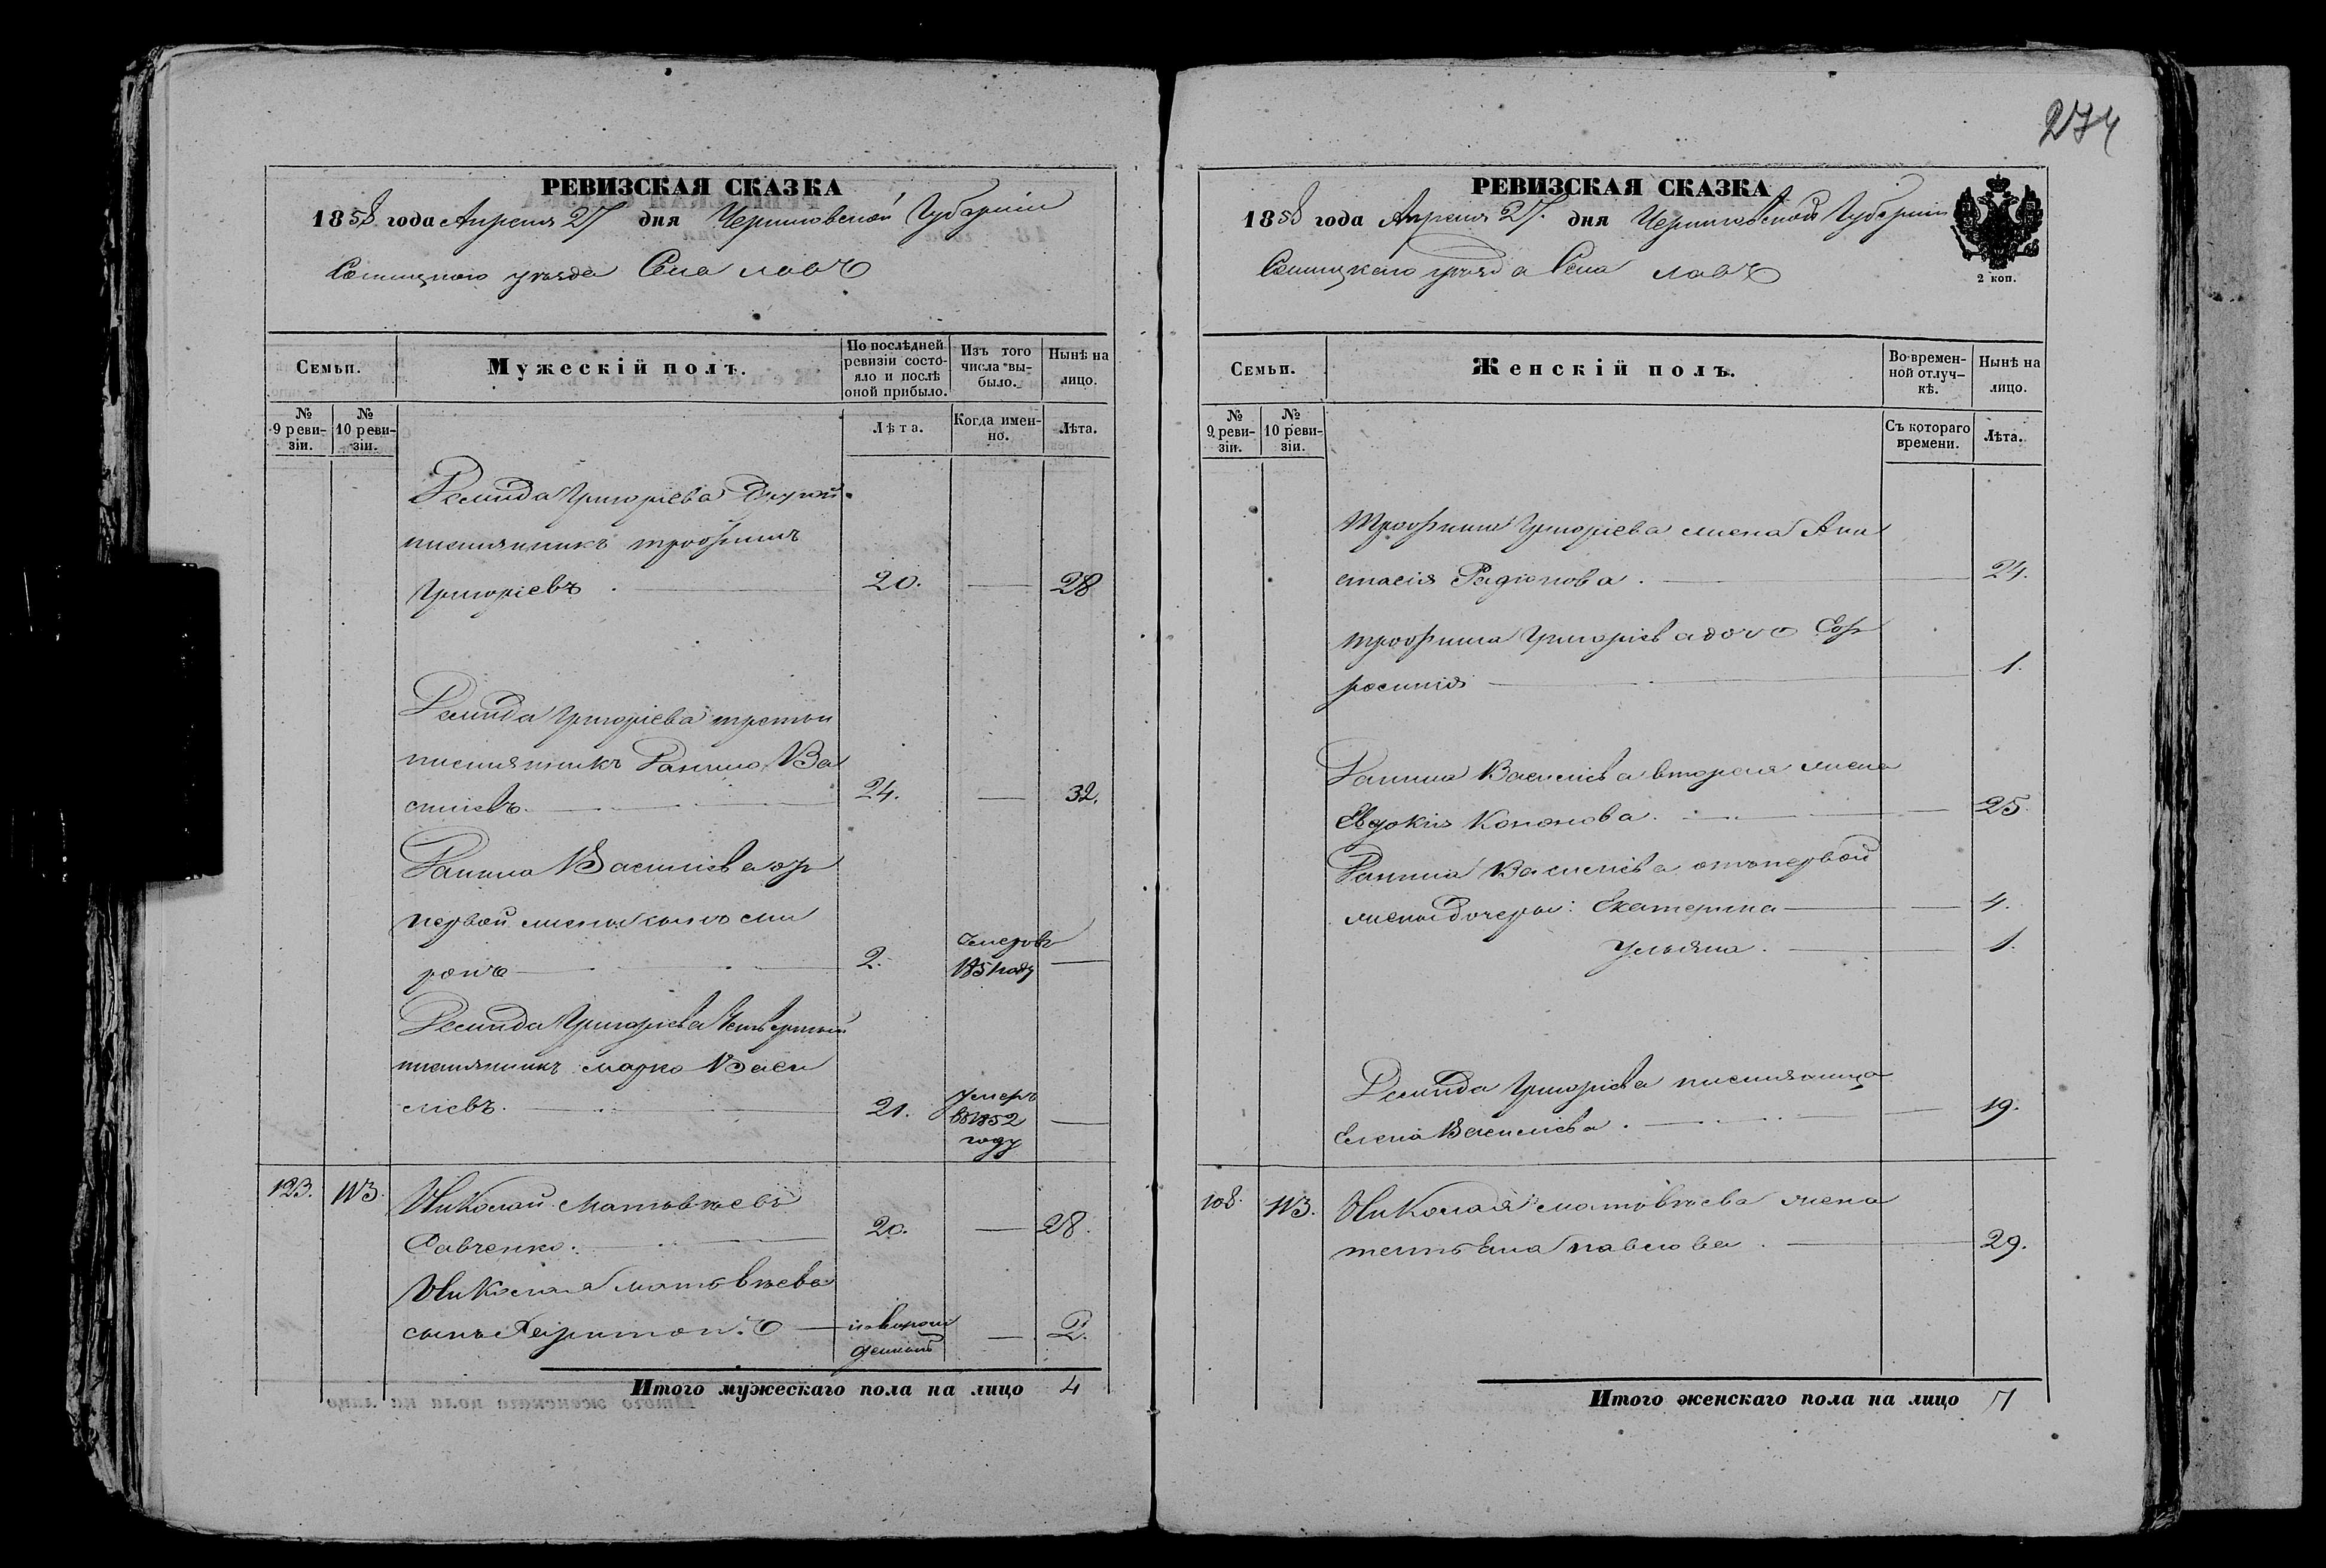 274
РЕВИЗСКАЯ СКАЗКА
1858 года Апреля 27 дня Черниговской Губернии
Сосницкого уезда Села Лавъ
Семьи.
Мужескій полъ.
По послѣдней ревизіи состо-
яло и послѣ оной прибыло.
Изъ того числа вы-
было.
Нынѣ на лицо.
№ 9 реви-
зіи.
№ 10 реви-
зіи.
Лѣта.
Когда имен-
но.
Лѣта.
Демида Григоріева другой
племянникъ Трофимъ
Григоріевъ 20. — 28
Демида Григоріева третій
племянникъ Данило Ва
силіевъ 24. — 32.
Данила Василіева отъ
первой жены сынъ Ми
ронъ 2. умеръ в 1851 году —
Демида Григоріева четвертый
племянникъ Марко Васи
ліевъ. 21. умеръ в 1852 году —
123. 113. Николай Матвѣевъ
Савченко. 20. — 28.
Николая Матвѣева
сынъ Харитонъ — новорож
денный — 2.
Итого мужескаго пола на лицо 4
РЕВИЗСКАЯ СКАЗКА
1858 года Апреля 27. дня Черниговской Губернии
Сосницкого уезда Села Лавъ
2 коп.
Семьи.
Женскій полъ.
Во времен-
ной отлуч-
кѣ.
Нынѣ на лицо.
№ 9 реви-
зіи.
№ 10 реви-
зіи.
Съ котораго времени.
Лѣта.
Трофима Григоріева жена Ана
стасія Радіонова. — 24.
Трофима Григоріева дочь Еф
росинія — 1.
Данила Василіева вторая жена
Евдокія Кононова. — 25.
Данила Василіева отъ первой
жены дочери: Екатерина — 4.
Ульяна. — 1.
Демида Григоріева племянница
Елена Василіева. — 19.
108. 113. Николая Матвѣева жена
Татьяна Павлова. — 29.
Итого женскаго пола на лицо 7